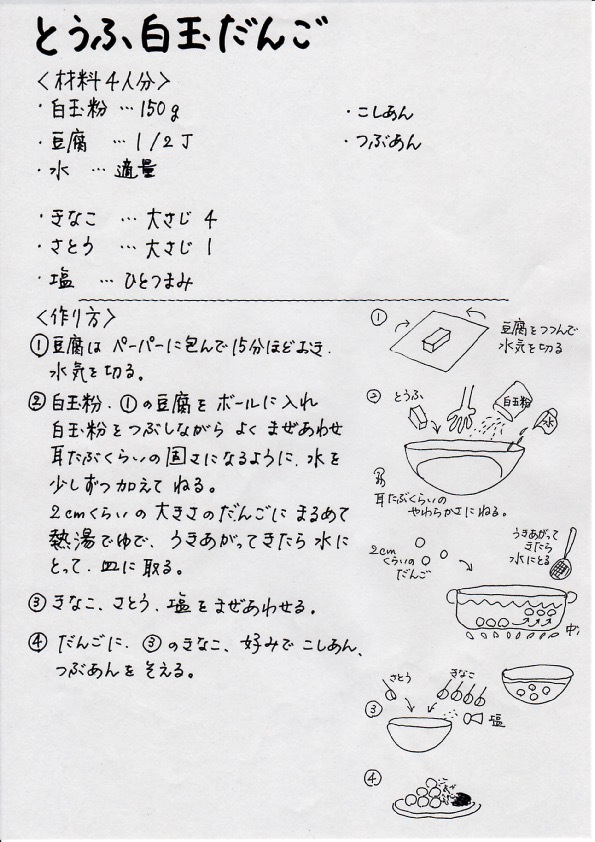 とうふ白玉だんご
〈材料4人分〉
・白玉粉 … 150g
・豆腐 … 1/2丁
・水 … 適量
・こしあん
・つぶあん
・きなこ … 大さじ 4
・さとう … 大さじ 1
・塩 … ひとつまみ
〈作り方〉
①豆腐は ペーパーに包んで15分ほどおき、
水気を切る。
②白玉粉、①の豆腐を ボールに入れ
白玉粉をつぶしながら よく まぜあわせ
耳たぶくらいの固さになるように、水を
少しずつ加えて ねる。
2cmくらいの大きさのだんごに まるめて
熱湯でゆで、うきあがってきたら 水に
とって、皿に取る。
③きなこ、さとう、塩をまぜあわせる。
④だんごに、③のきなこ、好みで こしあん、
つぶあんを そえる。
①
豆腐をつつんで
水気を切る
②
とうふ
白玉粉
水
耳たぶくらいの
やわらかさにねる。
2cm
くらいの
だんご
うきあがって
きたら
水にとる
中
③
さとう
きなこ
塩
④